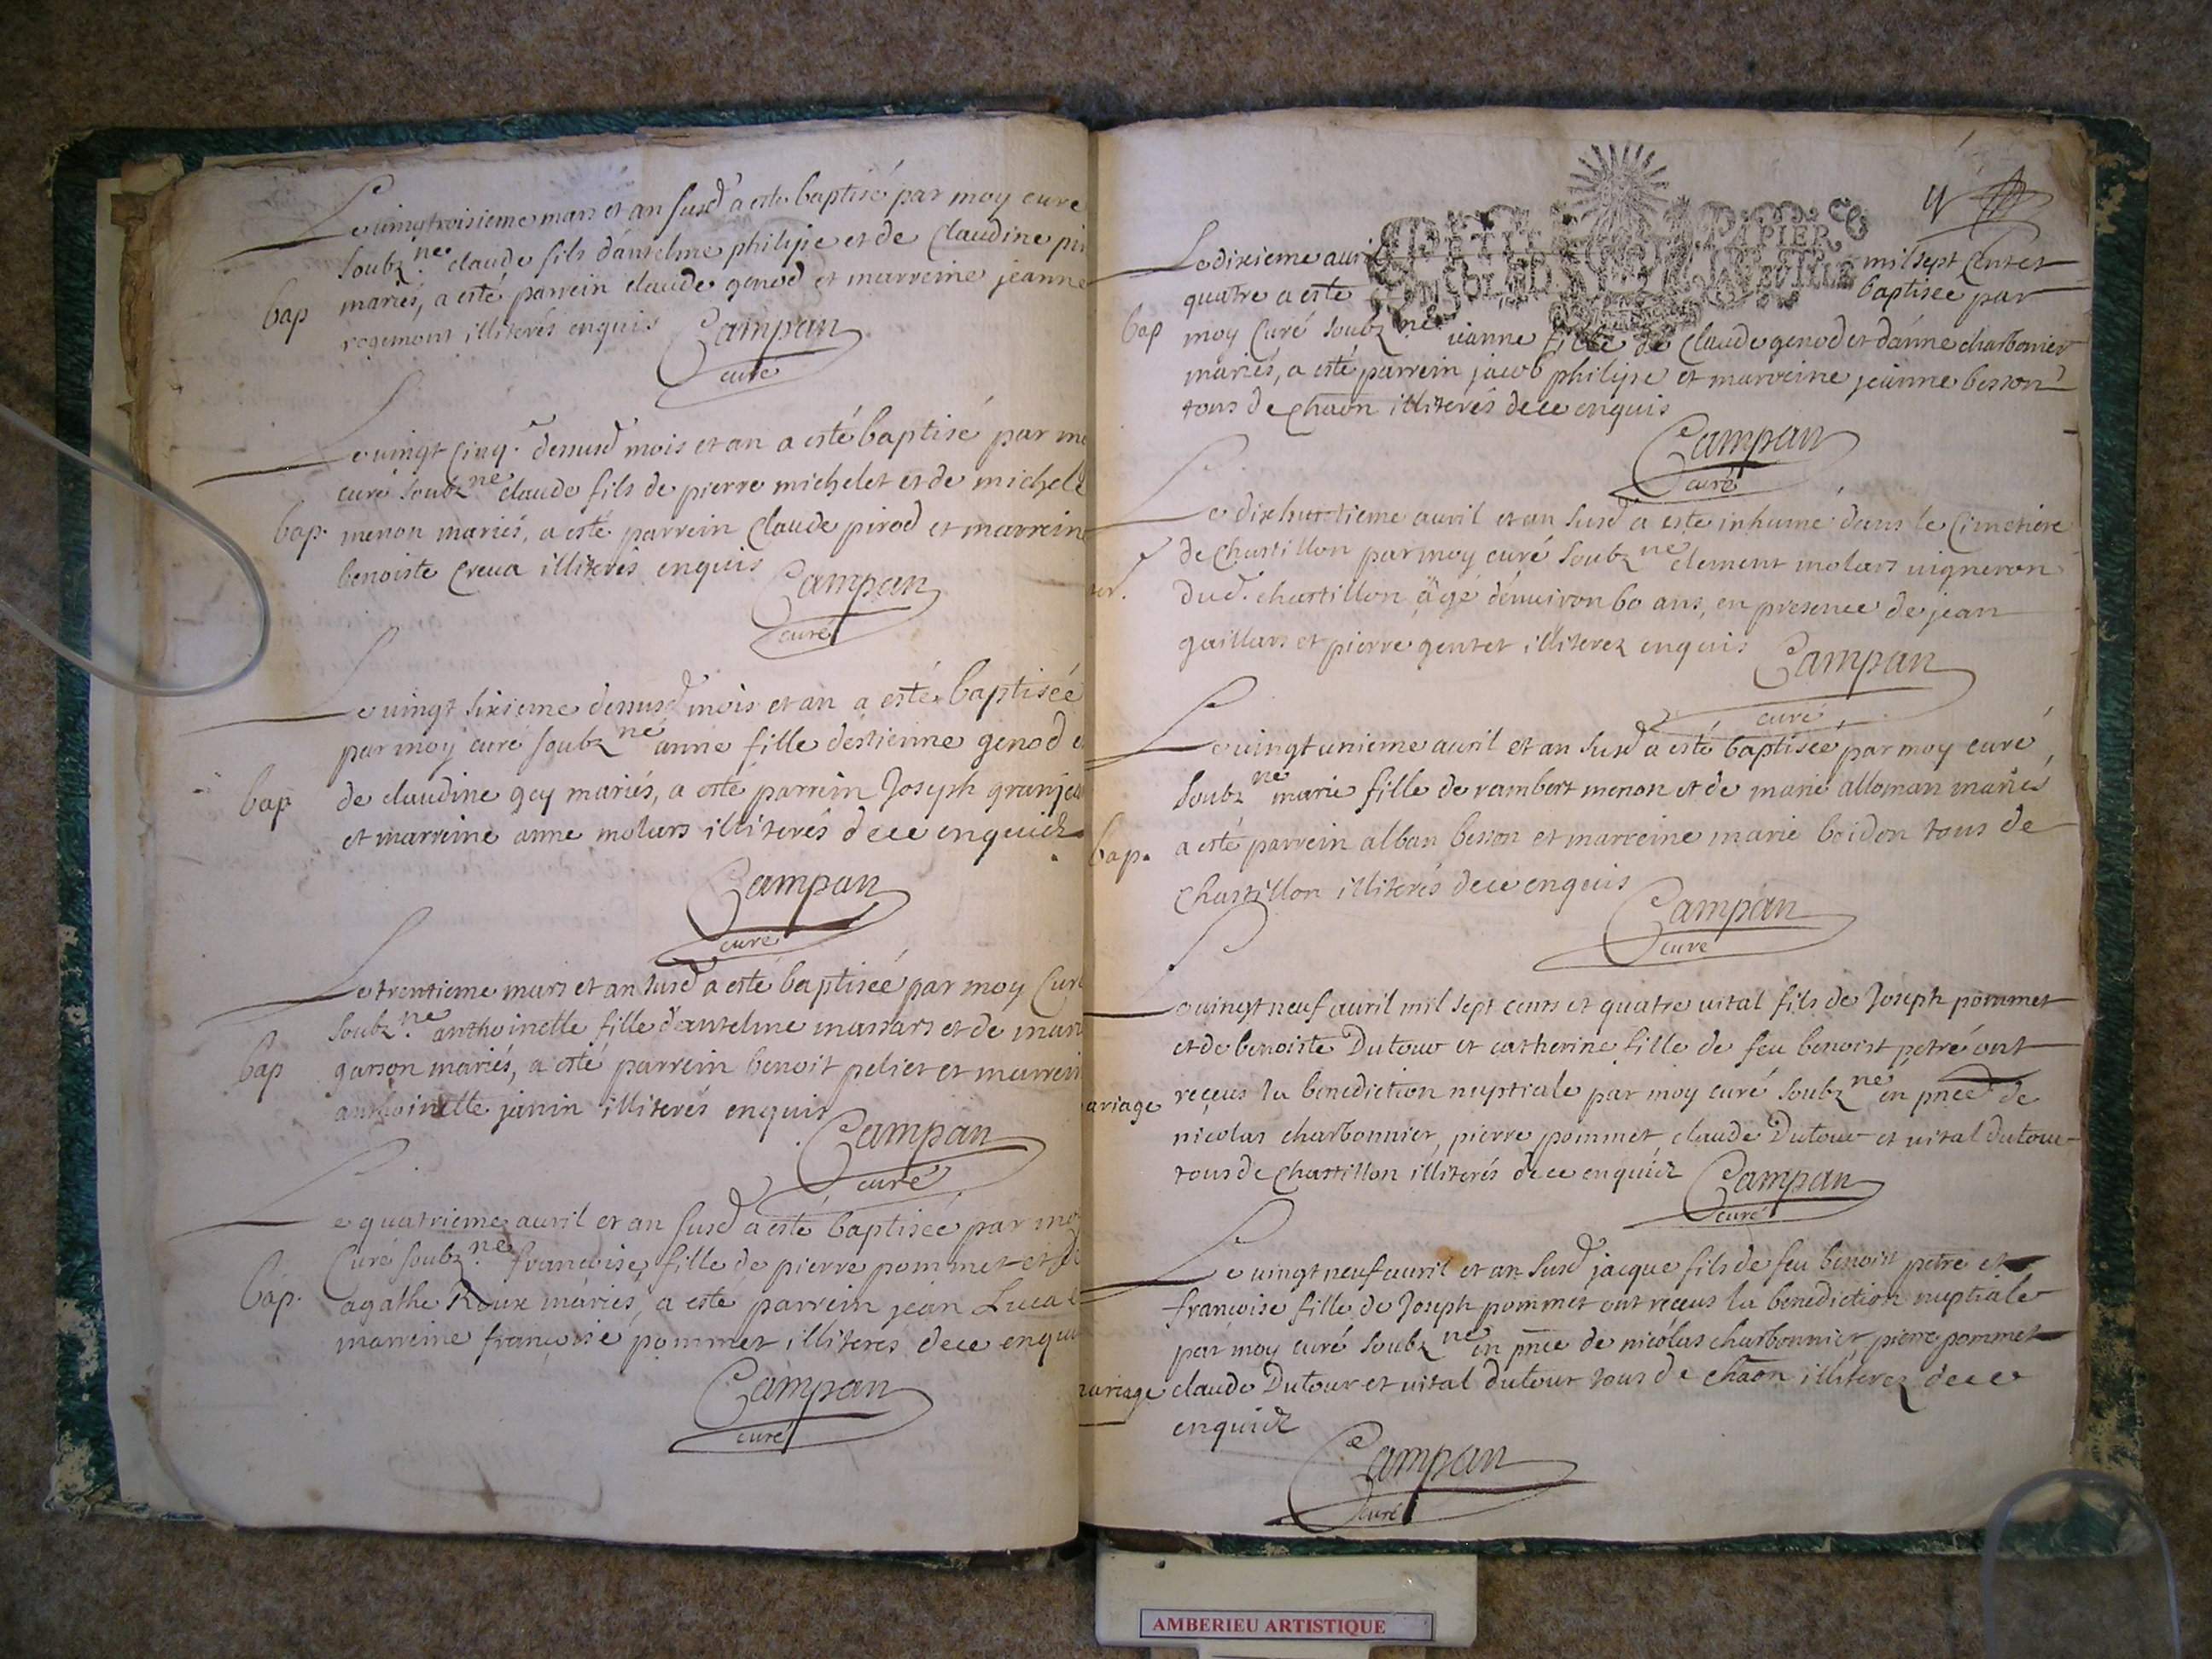 Le vingtroisieme mars et an susd a esté baptisé par moy curé
soubz.né claude fils d'antelme philipe et de Claudine
mariés, a esté parrein claude genod et marreine jeanne
bap
rogemont illiterés enquis Campan
curé
Le vingt cinq. dessusd mois et an a esté baptisé par
curé soubzné claude fils de pierre michelet et de michele
bap. menon mariés, a esté parrein Claude pirod et marrein
benoiste Creua illiterés enquis Campan
curé
Le vingt sixieme dessusd mois et an a esté baptisée
par moy curé soubzné anne fille d'estienne genod
bap de claudine gey mariés, a esté parrein Joseph
et marreine anne molars illiterés de ce enquiz
Campan
curé
Le trentieme mars et an susd a esté baptisée par moy Curé
soubz.né anthoinette fille d'antelme massars et de
bap garson mariés, a esté parrein benoit pelier et marrein
anthoinette janin illiterés enquis
Campan
curé
Le quatrieme auril et an susd a esté baptisée par moy
Curé soubz.né francoise, fille de pierre pommet et de
bap. agathe Roux mariés, a este parrein jean Luca
marreine francoise pommet illiteres de ce
Campan
curé
PETIT PAPIER
Le dixieme auril mil sept Cents et
quatre a esté baptisee par
bap moy Curé soubzné jeanne fille de Claude genod et d'anne charbonier
mariés, a esté parrein jacob philipe et marreine jeanne besson
tous de chaon illiterés de ce enquis
Campan
curé
Le dixhuitieme auril et an susd a este inhumé dans le Cimetiere
de Chastillon par moy curé soubzné clement molars uigneron
dud. chastillon âgé d'enuiron 60 ans, en presence de jean
gaillars et pierre gentet illiterez enquis Campan
curé
Le vingtunieme auril et an susd a esté baptiseé par moy curé
soubzné marie fille de rambert menon et de marie alloman mariés
bap. a esté parrein alban besson et marreine marie boidon tous de
Chastillon illiterés de ce enquis
Campan
curé
Le vingt neuf auril mil sept cents et quatre uital fils de Joseph pommet
et de benoiste Dutour et catherine fille de feu benoist petré ont
ariage receus la benediction nuptiale par moy curé soubzné en pnce de
nicolas charbonnier, pierre pommet claude Dutour et uital dutour
tous de Chastillon illiterés de ce enquiz Campan
curé
Le vingt neuf auril et an susd jacque fils de feu benoist petre et
francoise fille de Joseph pommet ont receus la benediction nuptiale
par moy curé soubzné en pnce de nicolas charbonnier, pierre pommet
ariage claude Dutour et uital dutour tous de chaon illiterez de ce
enquiz
Campan
curé
AMBERIEU ARTISTIQUE